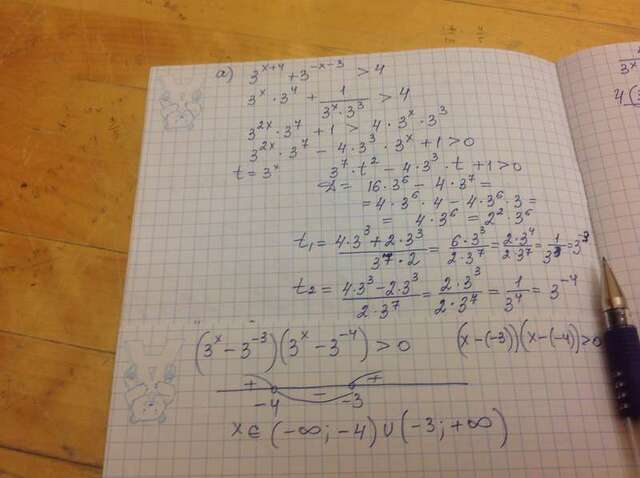 а) 3^(x+4) + 3^(-x-3) > 4
3^x · 3^4 + 1/(3^x · 3^3) > 4
3^(2x) · 3^7 + 1 > 4 · 3^x · 3^3
3^(2x) · 3^7 - 4 · 3^3 · 3^x + 1 > 0
t = 3^x 3^7 · t^2 - 4 · 3^3 · t + 1 > 0
D = 16 · 3^6 - 4 · 3^7 =
= 4 · 3^6 · 4 - 4 · 3^6 · 3 =
= 4 · 3^6 = 2^2 · 3^6
t1 = (4 · 3^3 + 2 · 3^3)/(3^7 · 2) = (6 · 3^3)/(2 · 3^7) = (2 · 3^4)/(2 · 3^7) = 1/3^3 = 3^-3
t2 = (4 · 3^3 - 2 · 3^3)/(2 · 3^7) = (2 · 3^3)/(2 · 3^7) = 1/3^4 = 3^-4
(3^x - 3^-3)(3^x - 3^-4) > 0 (x - (-3))(x - (-4)) > 0
+ - +
-4 -3
x ∈ (-∞; -4) ∪ (-3; +∞)